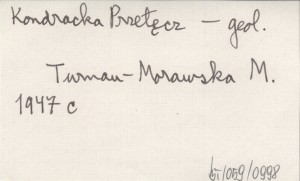 Kondracka Przełęcz – geol.
Turnau-Morawska M.
1947 c
bi/059/0998